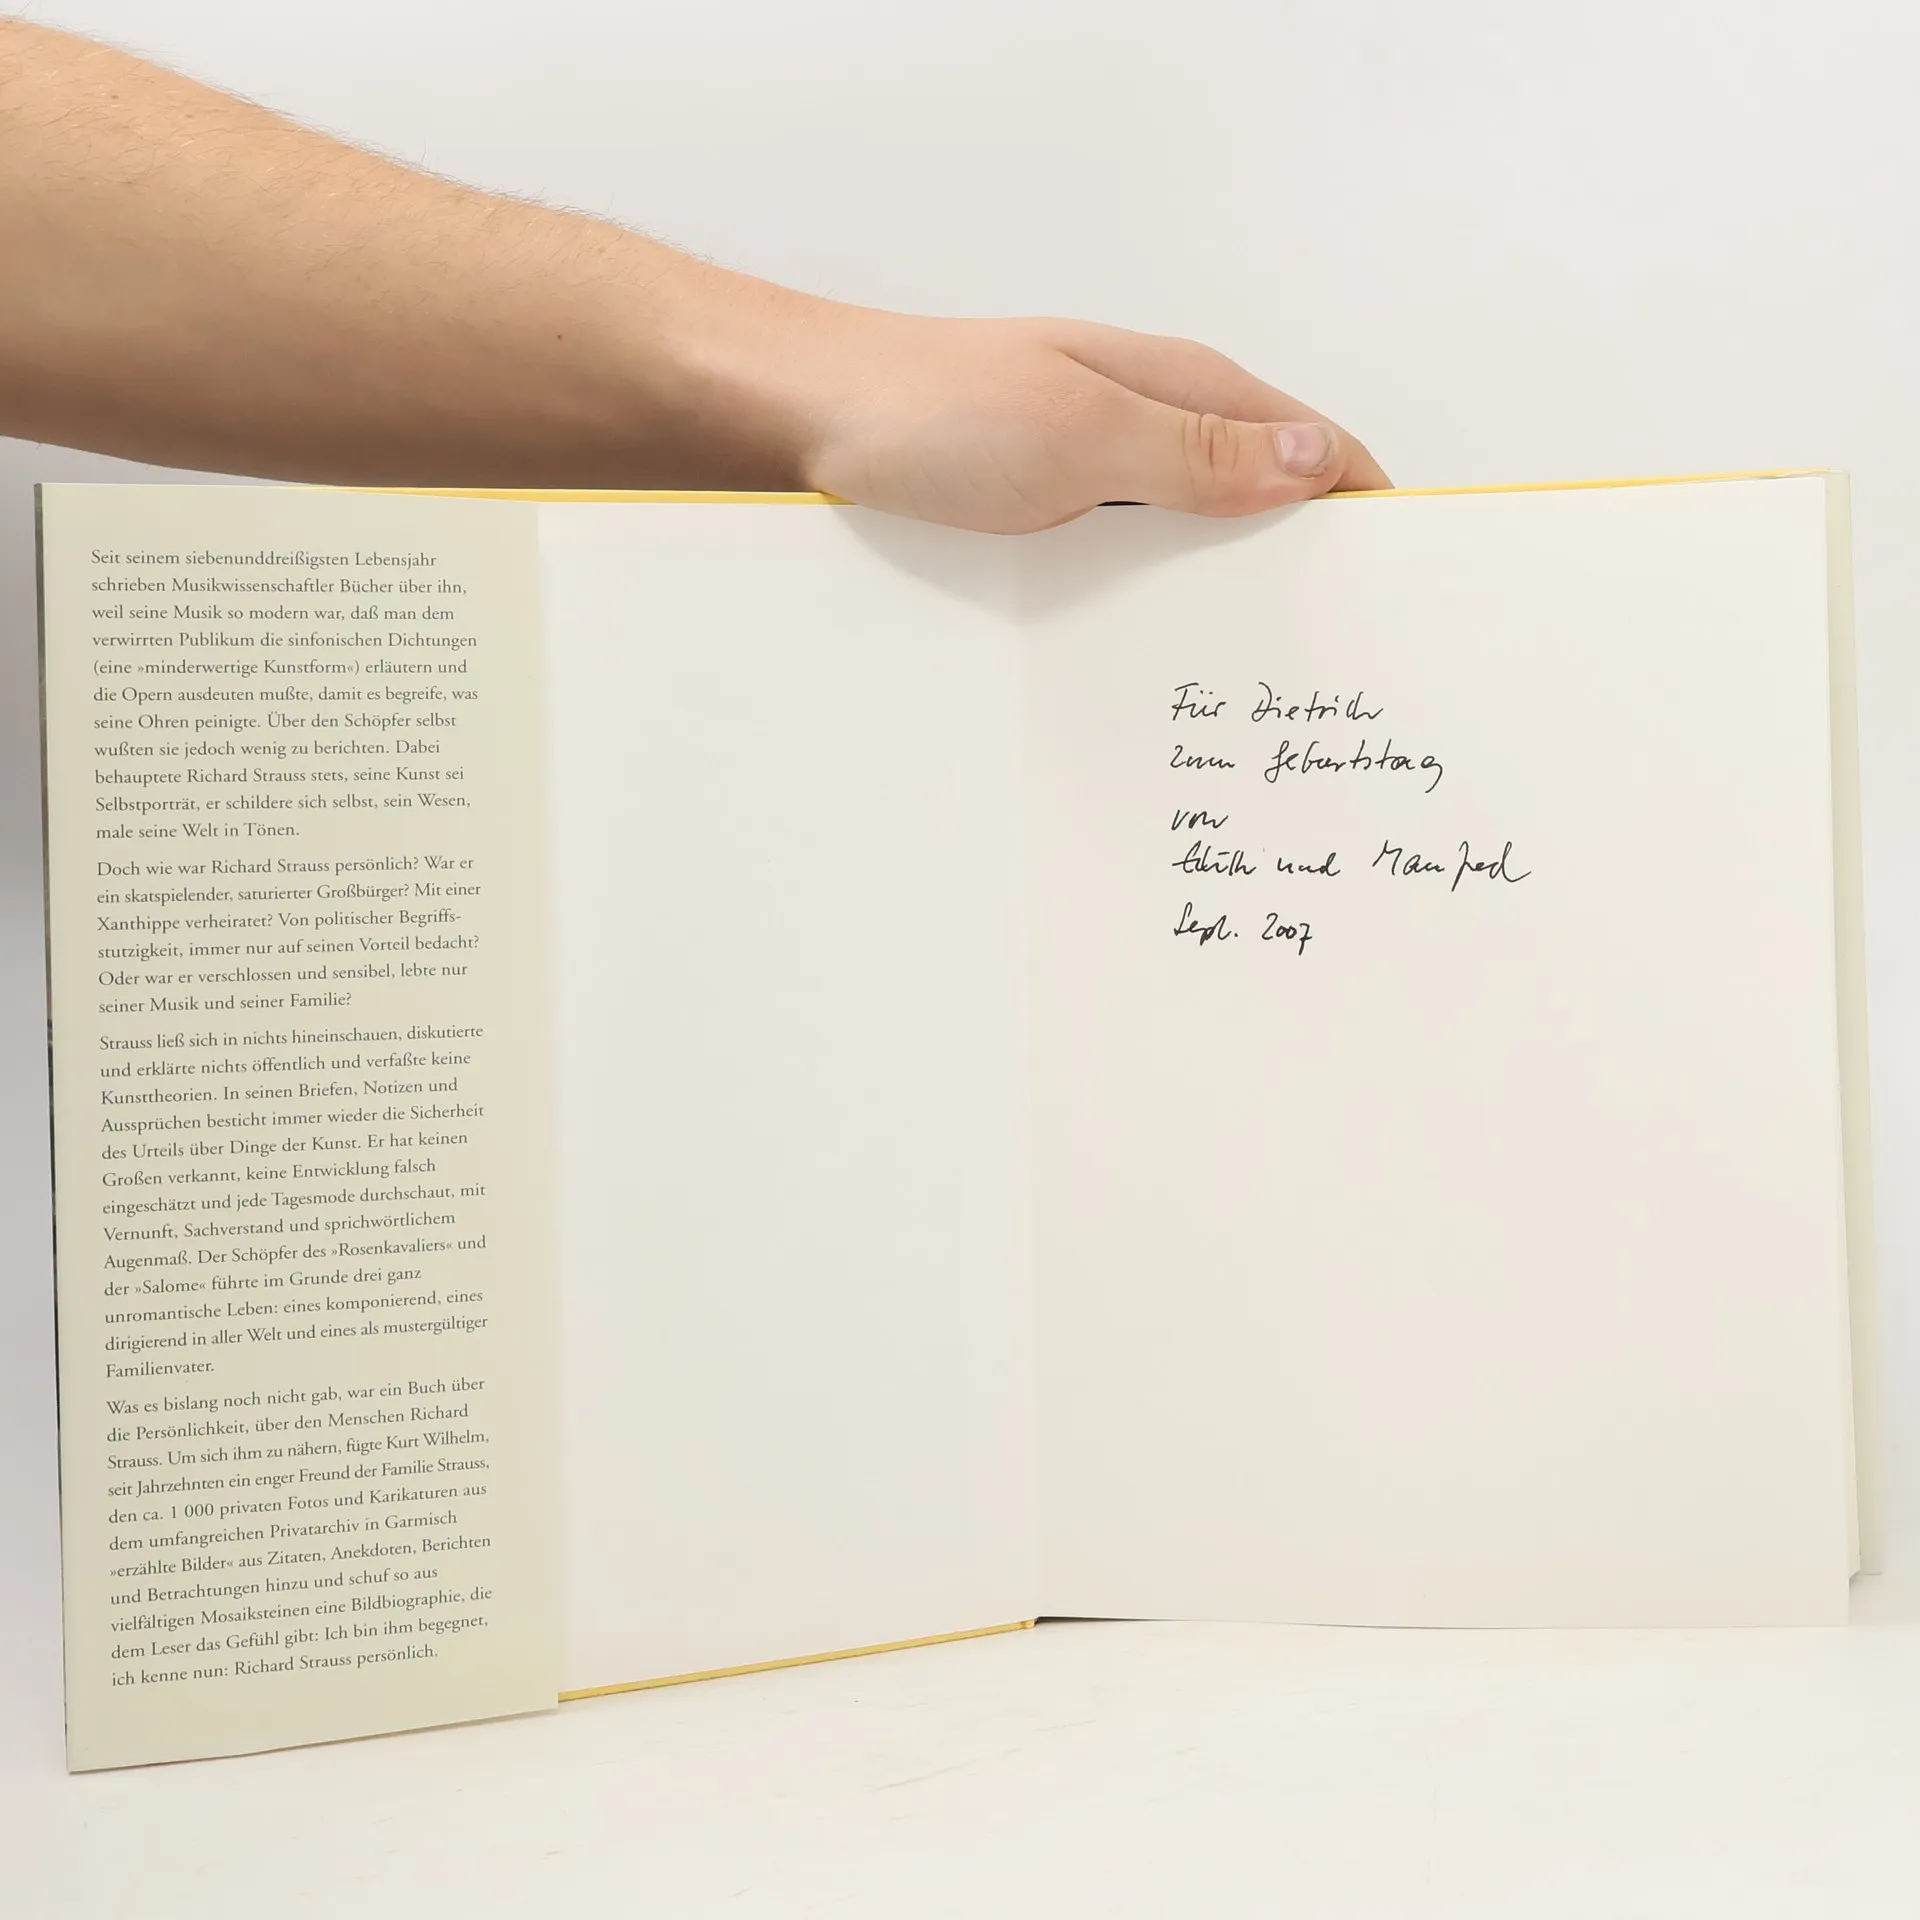 Seit seinem siebenunddreißigsten Lebensjahr
schrieben Musikwissenschaftler Bücher über ihn,
weil seine Musik so modern war, daß man dem
verwirrten Publikum die sinfonischen Dichtungen
(eine »minderwertige Kunstform«) erläutern und
die Opern ausdeuten mußte, damit es begreife, was
seine Ohren peinigte. Über den Schöpfer selbst
wußten sie jedoch wenig zu berichten. Dabei
behauptete Richard Strauss stets, seine Kunst sei
Selbstporträt, er schildere sich selbst, sein Wesen,
male seine Welt in Tönen.
Doch wie war Richard Strauss persönlich? War er
ein skatspielender, saturierter Großbürger? Mit einer
Xanthippe verheiratet? Von politischer Begriffs-
stutzigkeit, immer nur auf seinen Vorteil bedacht?
Oder war er verschlossen und sensibel, lebte nur
seiner Musik und seiner Familie?
Strauss ließ sich in nichts hineinschauen, diskutierte
und erklärte nichts öffentlich und verfaßte keine
Kunsttheorien. In seinen Briefen, Notizen und
Aussprüchen besticht immer wieder die Sicherheit
des Urteils über Dinge der Kunst. Er hat keinen
Großen verkannt, keine Entwicklung falsch
eingeschätzt und jede Tagesmode durchschaut, mit
Vernunft, Sachverstand und sprichwörtlichem
Augenmaß. Der Schöpfer des »Rosenkavaliers« und
der »Salome« führte im Grunde drei ganz
unromantische Leben: eines komponierend, eines
dirigierend in aller Welt und eines als mustergültiger
Familienvater.
Was es bislang noch nicht gab, war ein Buch über
die Persönlichkeit, über den Menschen Richard
Strauss. Um sich ihm zu nähern, fügte Kurt Wilhelm,
seit Jahrzehnten ein enger Freund der Familie Strauss,
den ca. 1 000 privaten Fotos und Karikaturen aus
dem umfangreichen Privatarchiv in Garmisch
»erzählte Bilder« aus Zitaten, Anekdoten, Berichten
und Betrachtungen hinzu und schuf so aus
vielfältigen Mosaiksteinen eine Bildbiographie, die
dem Leser das Gefühl gibt: Ich bin ihm begegnet,
ich kenne nun: Richard Strauss persönlich.
Für Dietrich
zum Geburtstag
von
und Manfred
Sept. 2007